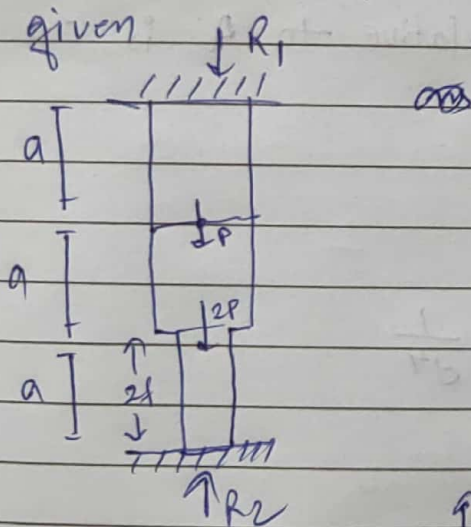 given
R1
a
P
a
2P
a
R2